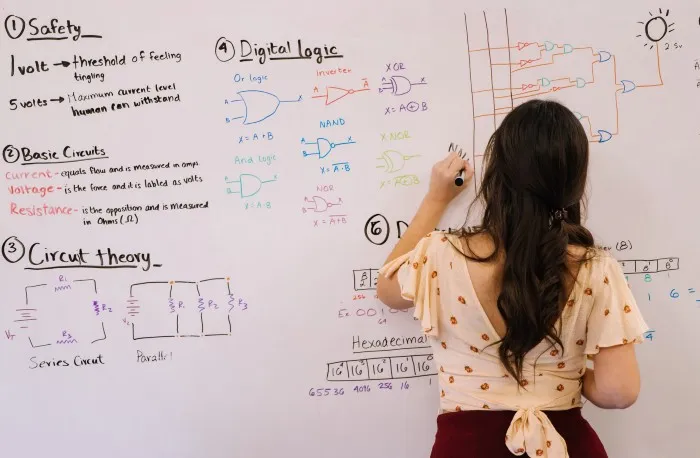 ① Safety
1 volt → threshold of feeling
tingling
5 volts → Maximum current level
human can withstand
② Basic Circuits
current - equals flow and is measured in amps
Voltage - is the force and it is labled as volts
Resistance - is the opposition and is measured
in Ohms (Ω)
③ Circuit theory
R1
R2
R3
Series Circuit
R1
R2
R3
Parallel
④ Digital logic
Or logic
A
B
X
X = A + B
And logic
A
B
X
X = A·B
inverter
A
A̅
NAND
A
B
X
X = \overline{A·B}
NOR
A
B
X
X = \overline{A+B}
XOR
A
B
X
X = A ⊕ B
X NOR
X = \overline{A⊕B}
2.5v
⑥ D
(8)
8¹ 8⁰
256
Ex. 0010
64
1 6 =
Hexadecimal
16⁴ 16³ 16² 16¹ 16⁰
65536 4096 256 16 1